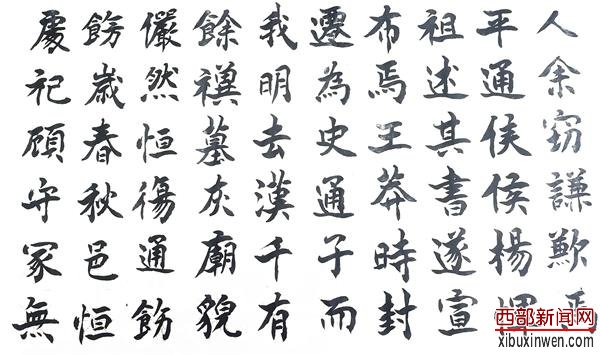 人余窃謙歎焉
平通侯侯楊惲
祖述其書遂宣
布焉王莽時封
遷為史通子而
我明去漢千有
餘禩墓灰廟貌
儼然恒傷通飭
飭歲春秋邑恒
慶祀顧守冢無
西部新闻网
xibuxinwen.com